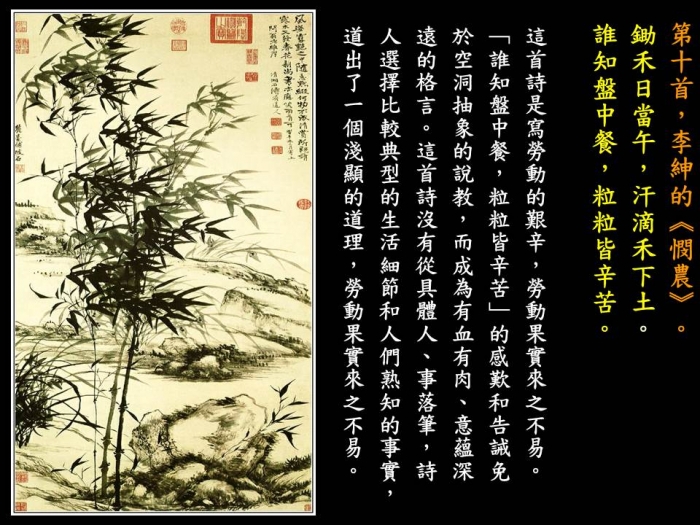 第十首，李紳的《憫農》。
鋤禾日當午，汗滴禾下土。
誰知盤中餐，粒粒皆辛苦。
這首詩是寫勞動的艱辛，勞動果實來之不易。
「誰知盤中餐，粒粒皆辛苦」的感歎和告誡免
於空洞抽象的說教，而成為有血有肉、意蘊深
遠的格言。這首詩沒有從具體人、事落筆，詩
人選擇比較典型的生活細節和人們熟知的事實，
道出了一個淺顯的道理，勞動果實來之不易。